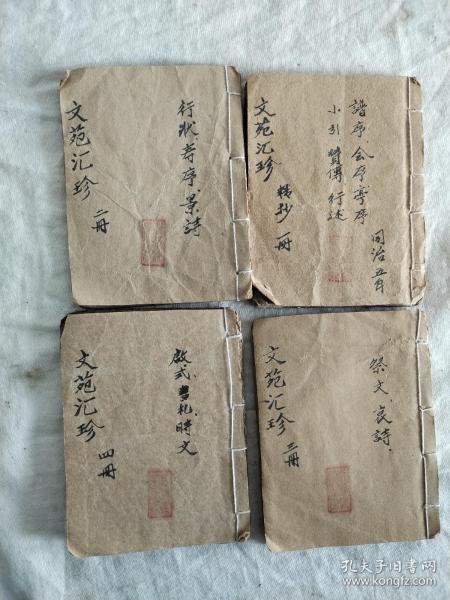 文苑汇珍 二冊
行狀、壽序、景詩
文苑汇珍 精抄 一冊
譜序、会序、亭序
小引 贊傳 行述
同治五年
文苑汇珍 四冊
啟式、書札、時文
文苑汇珍 三冊
祭文、哀詩.
孔夫子旧书网
www.kongfz.com